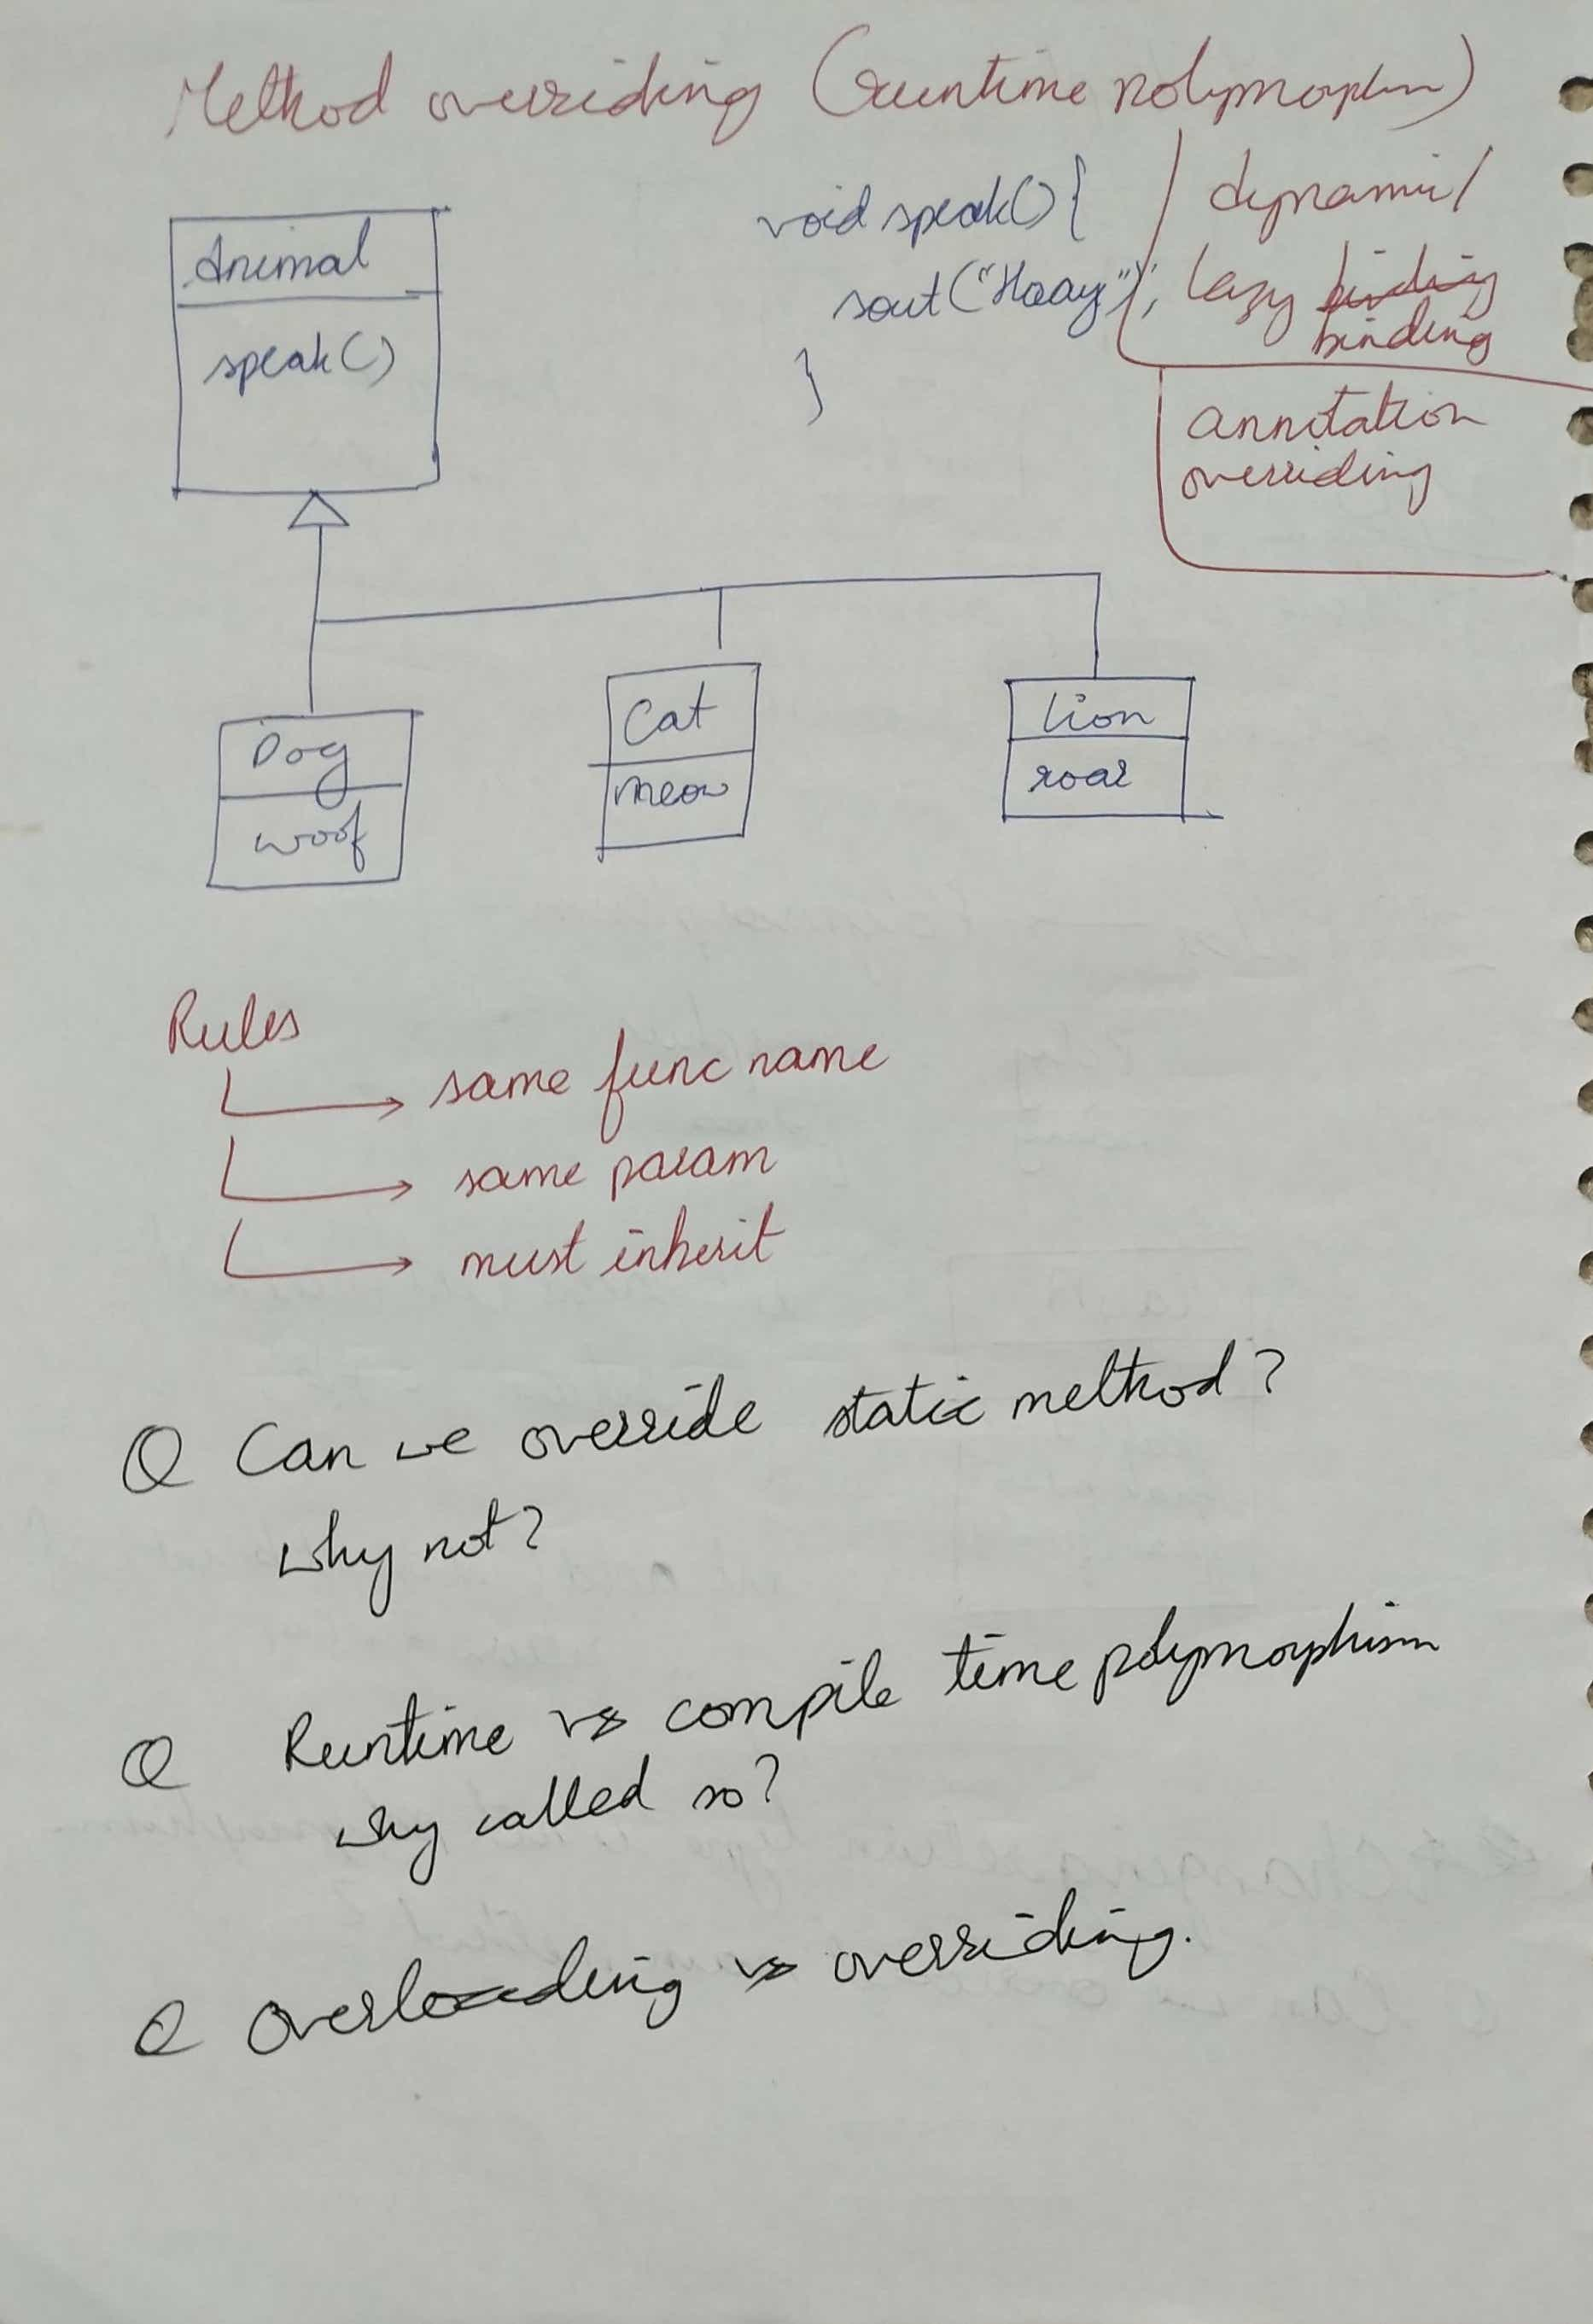 Method overriding (runtime polymorphm)
void speak() {
sout("Haay");
}
dynamic/
lazy binding
binding
annotation
overriding
Animal
speak()
Dog
woof
Cat
meow
Lion
roar
Rules
same func name
same param
must inherit
Q Can we override static method?
why not?
Q Runtime vs compile time polymorphism
why called so?
Q Overloading vs overriding.